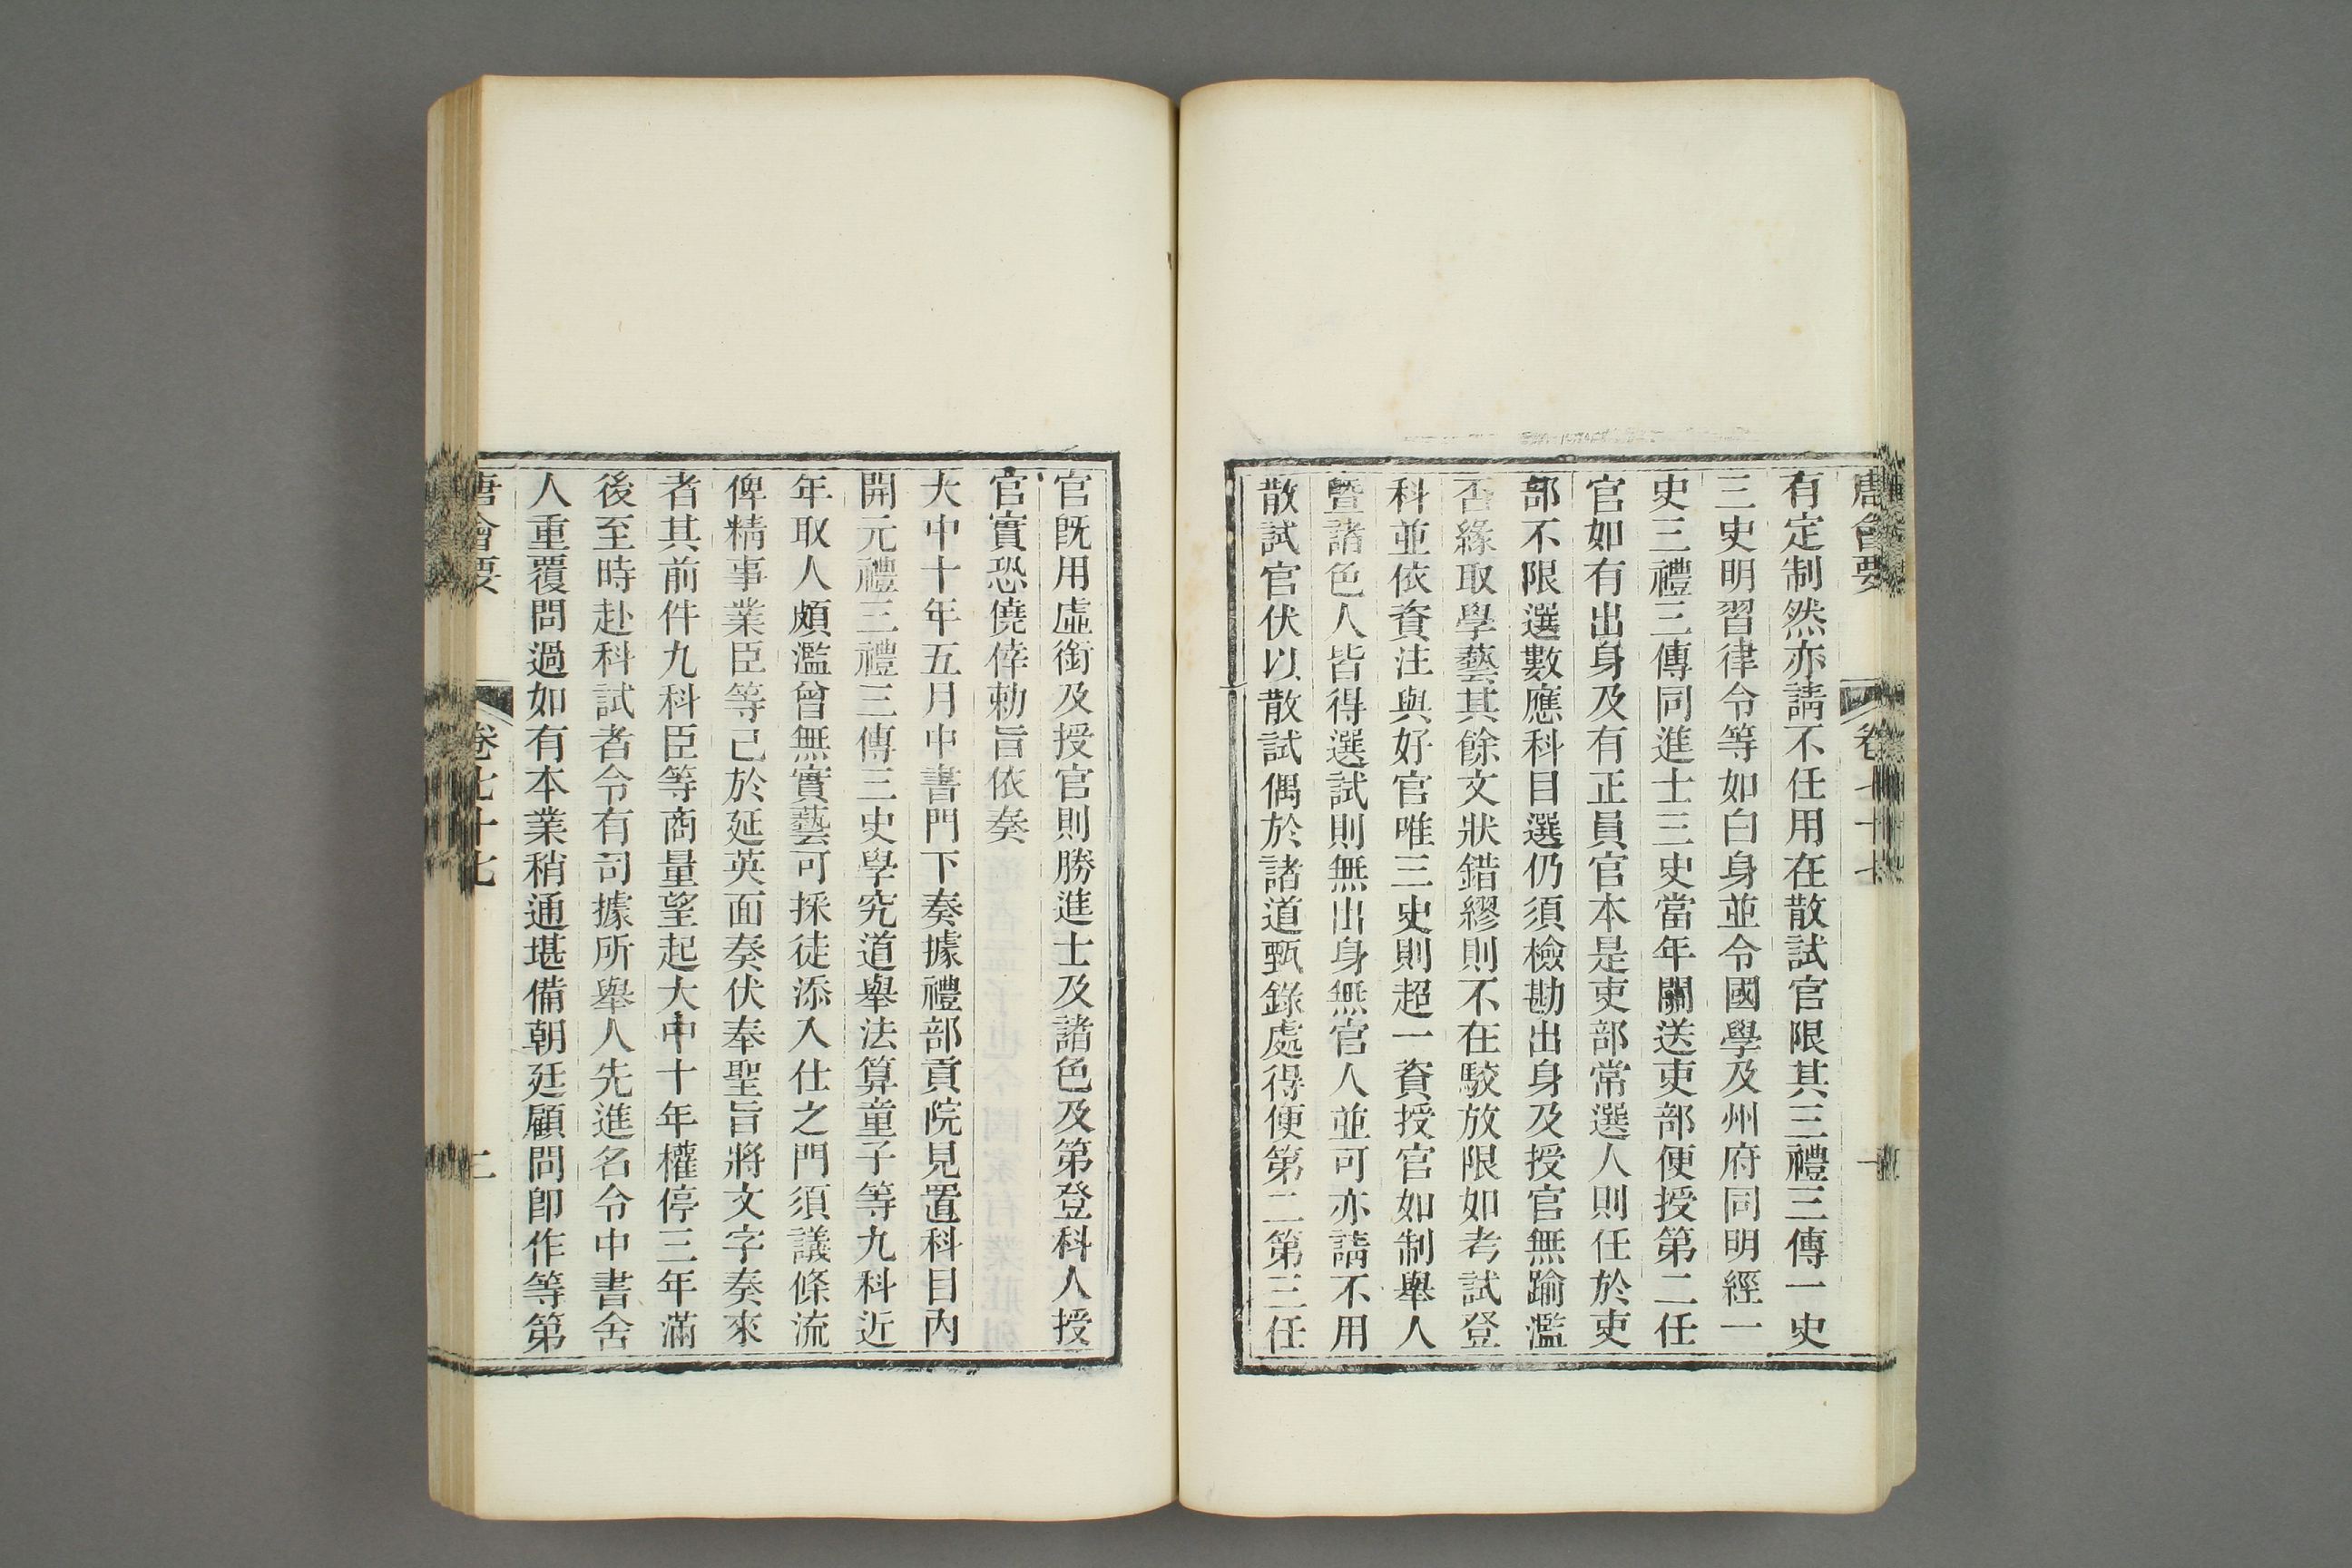 唐會要 卷七十七 一
有定制然亦請不任用在散試官限其三禮三傳一史
三史明習律令等如白身並令國學及州府同明經一
史三禮三傳同進士三史當年關送吏部便授第二任
官如有出身及有正員官本是吏部常選人則任於吏
部不限選數應科目選仍須檢勘出身及授官無踰濫
否緣取學藝其餘文狀錯繆則不在駮放限如考試登
科並依資注與好官唯三史則超一資授官如制舉人
暨諸色人皆得選試則無出身無官人並可亦請不用
散試官伏以散試偶於諸道甄錄處得便第二第三任
官旣用虛銜及授官則勝進士及諸色及第登科人授
官實恐僥倖勅旨依奏
大中十年五月中書門下奏據禮部貢院見置科目內
開元禮三禮三傳三史學究道舉法算童子等九科近
年取人頗濫曾無實藝可採徒添入仕之門須議條流
俾精事業臣等已於延英面奏伏奉聖旨將文字奏來
者其前件九科臣等商量望起大中十年權停三年滿
後至時赴科試者令有司據所舉人先進名令中書舍
人重覆問過如有本業稍通堪備朝廷顧問卽作等第
唐會要 卷七十七 二